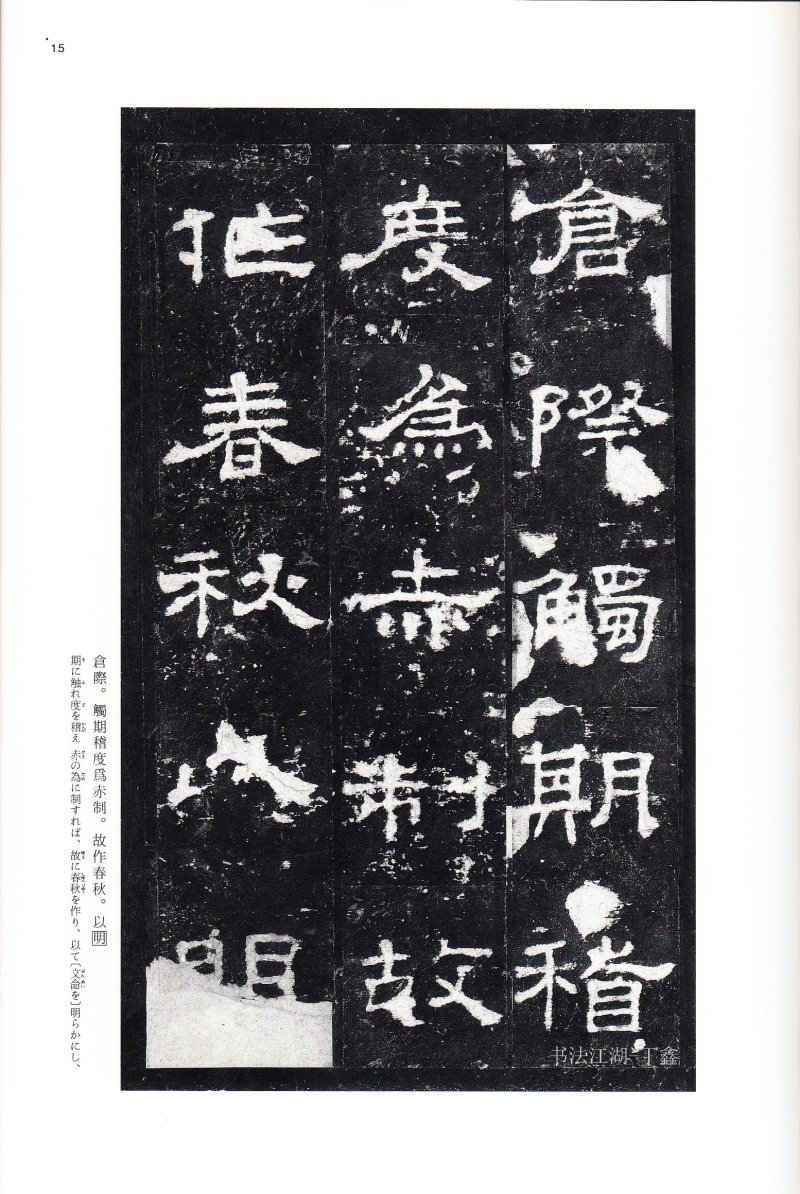 15
倉際觸期稽
度為赤制故
作春秋以明
倉際。觸期稽度爲赤制。故作春秋。以明
期に触れ度を稽え 赤の為に制すれば、故に春秋を作り、以て〔文命を〕明らかにし、
书法江湖-丁鑫